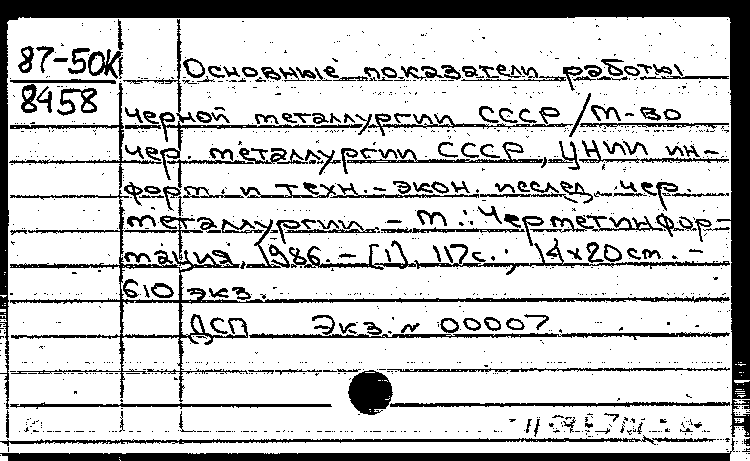 87-50К
8458
Основные показатели работы
черной металлургии СССР / М-во
чер. металлургии СССР, ЦНИИ ин-
форм. и техн.-экон. исслед. чер.
металлургии. - М.: Черметинфор-
мация, 1986. - [1], 117 с.; 14×20 см. -
610 экз.
ДСП Экз. № 00007.